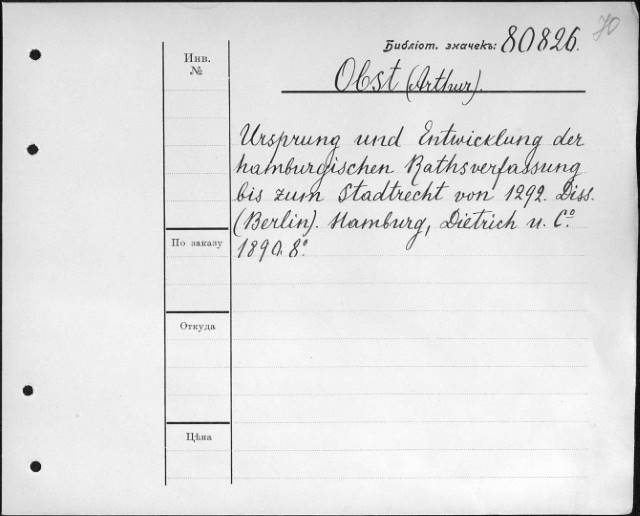 70
Библіот. значекъ: 80826.
Инв.
№
Obst (Arthur).
Ursprung und Entwicklung der
hamburgischen Rathsverfassung
bis zum Stadtrecht von 1292. Diss.
(Berlin). Hamburg, Dietrich u. Cº
1890. 8º
По заказу
Откуда
Цѣна